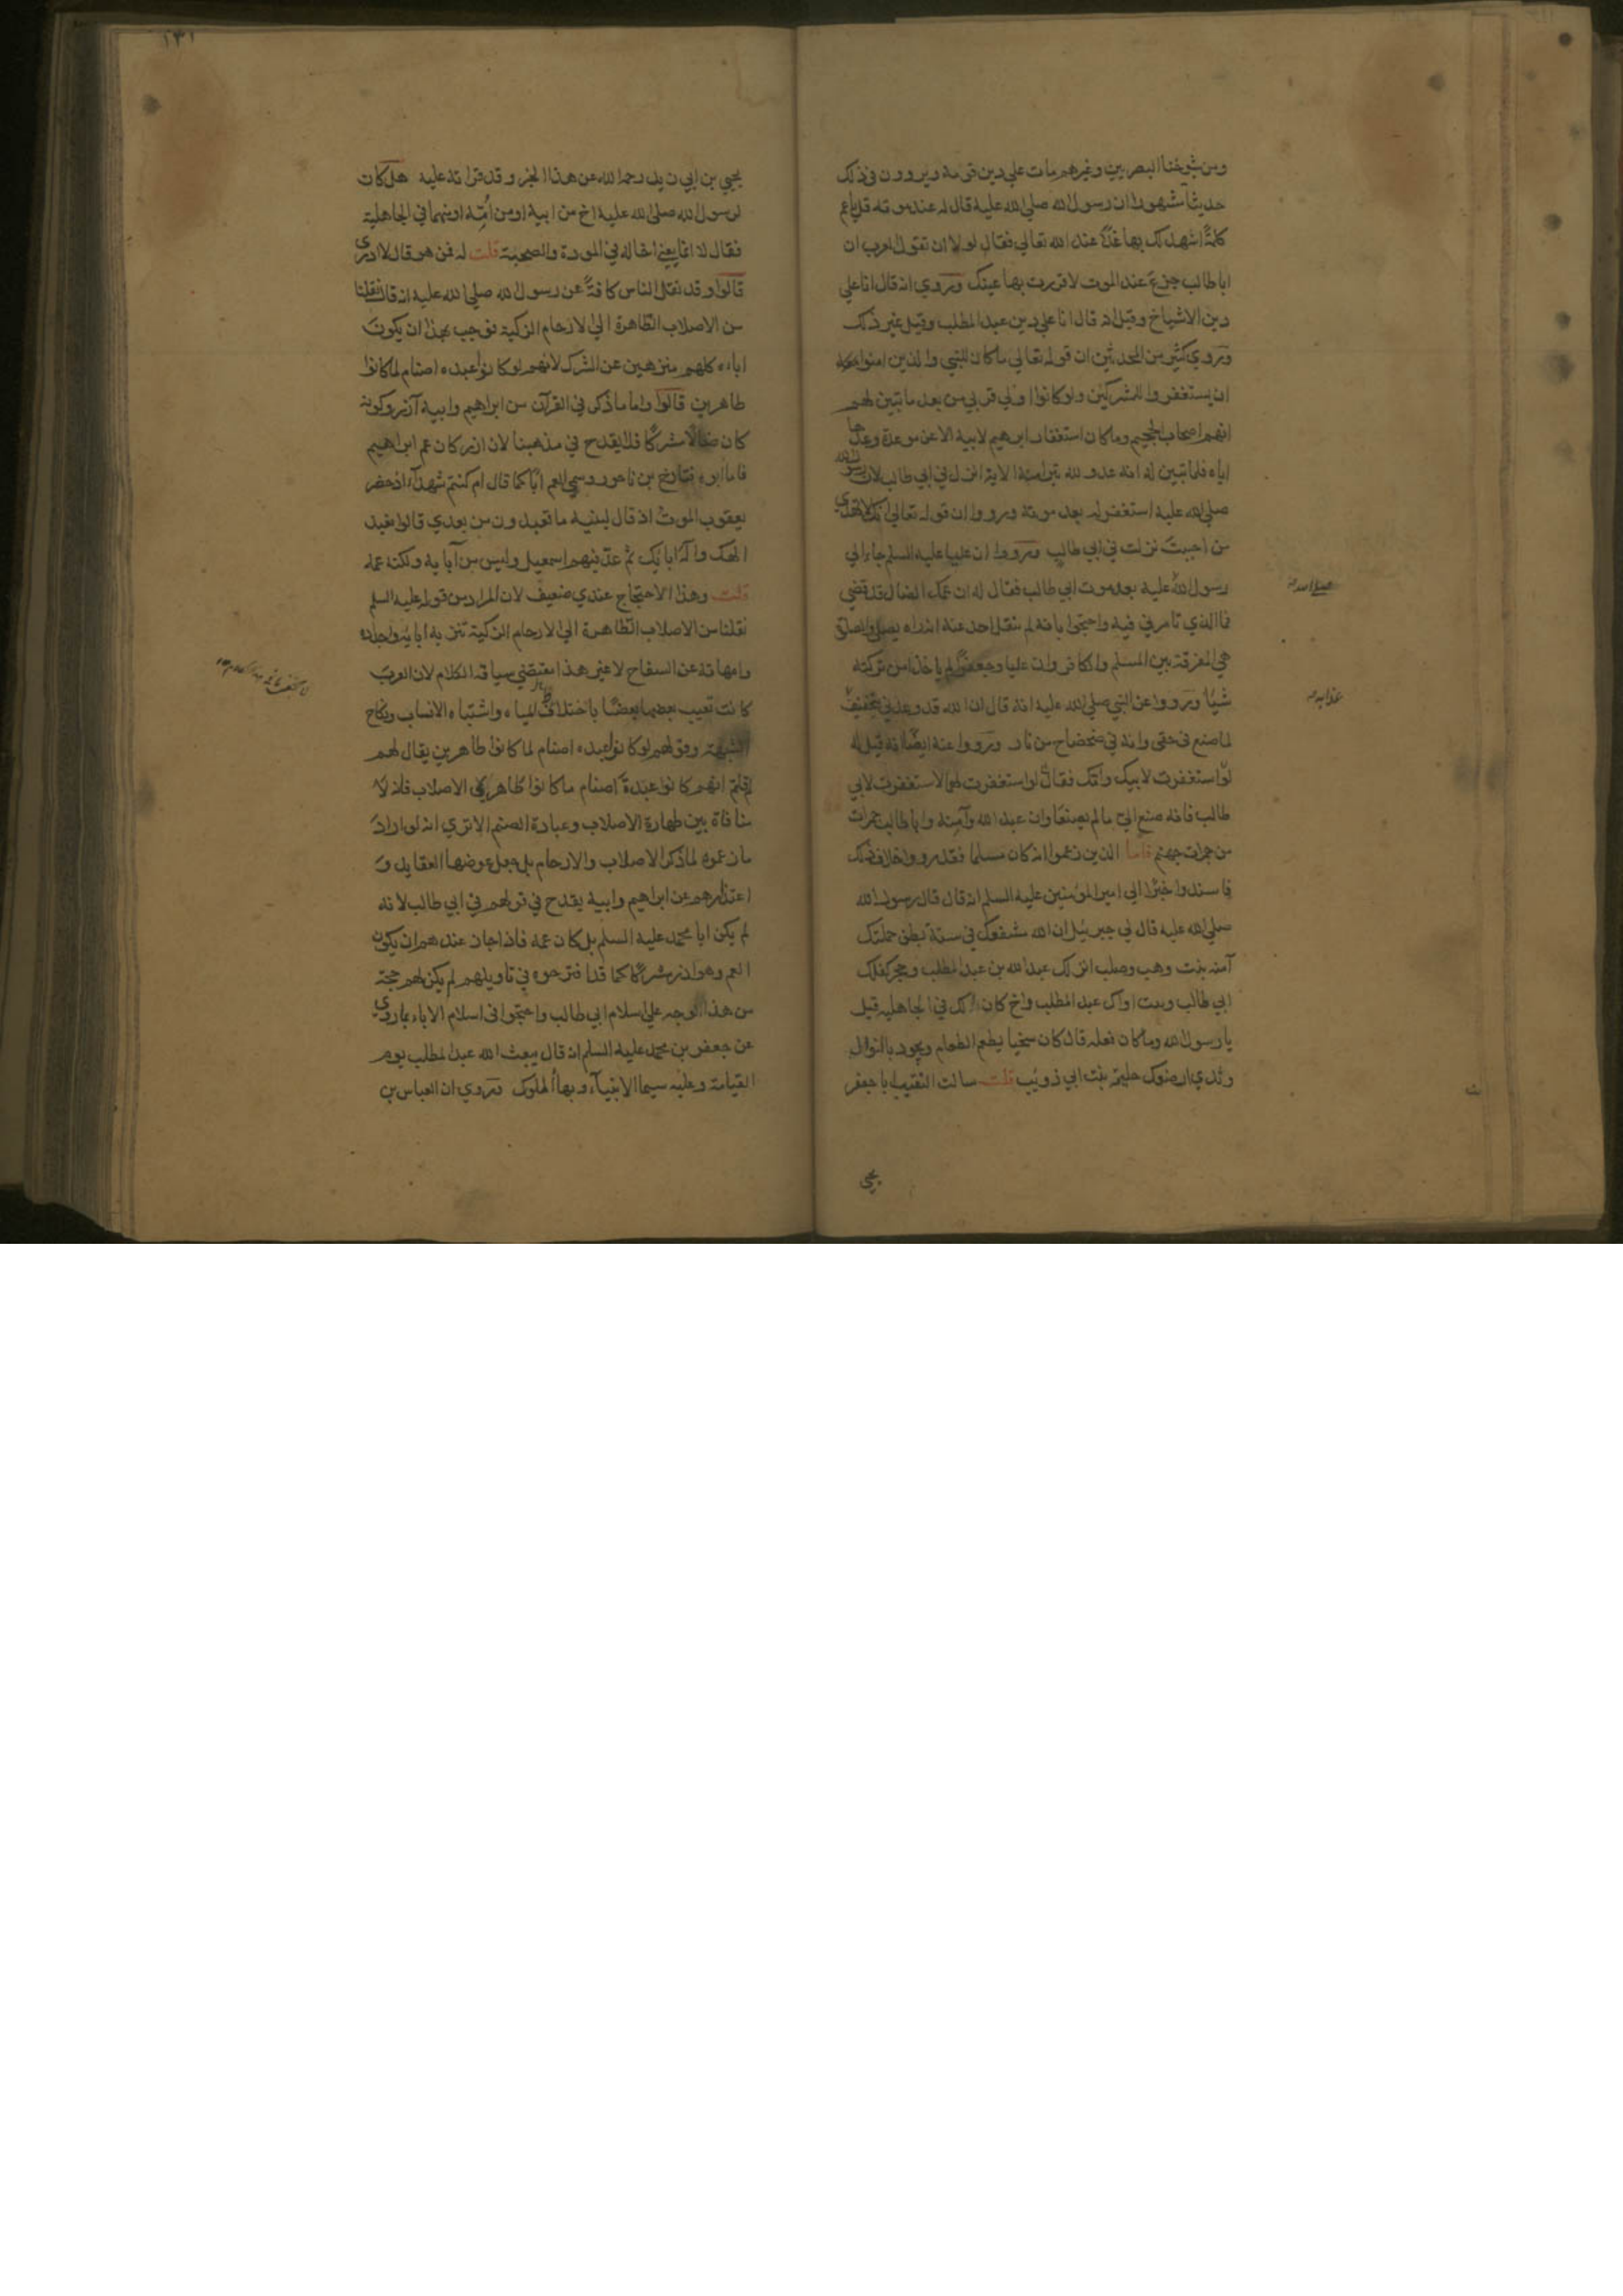 ومن شيوخنا البصريين وغيرهم مات علي دين قومه ويروون في ذلك
حديثا مشهورا ان رسول الله صلي الله عليه قال له عند موته قل ياعم
كلمةً اشهد لك بها غدًا عند الله تعالي فقال لولا ان تقول العرب ان
اباطالب جزع عند الموت لاقررت بها عينك وروي انه قال انا علي
دين الاشياخ وقيل انه قال انا علي دين عبد المطلب وقيل غير ذلك
وروي كثير من المحدثين ان قوله تعالي ما كان للنبي والذين امنوا معه
ان يستغفروا للمشركين ولو كانوا اولي قربي من بعد ما تبين لهم
انهم اصحاب الجحيم وما كان استغفار ابرهيم لابيه الا عن موعدة وعدها
اياه فلما تبين له انه عدو لله تبرا منه الاية انزل في ابي طالب لان رسول الله
صلي الله عليه استغفر له بعد موته ورووا ان قوله تعالي انك لا تهدي
من احببت نزلت في ابي طالب ورووا ان عليا عليه السلم جاء الي
رسول الله عليه بعد موت ابي طالب فقال له ان عمك الضال قد قضي
فما الذي تامرني فيه واحتجوا بانه لم ينقل احد عنه انه راه يصلي والصلوة
هي المفرقة بين المسلم والكافر وان عليا وجعفرًا لم ياخذا من تركته
شيًا ورووا عن النبي صلي الله عليه انه قال ان الله قد وعدني بتخفيف
لما صنع في حقي وانه في ضحضاح من نار ورووا عنه ايضًا انه قيل له
لو استغفرت لابيك وامك فقال لو استغفرت لهما لاستغفرت لابي
طالب فانه صنع الي ما لم يصنعا وان عبد الله وآمنة وابا طالب جمرات
من جمرات جهنم فاما الذين زعموا انه كان مسلما فقد رووا خلاف ذلك
فاسندوا خبرًا الي امير المؤمنين عليه السلم انه قال قال رسول الله
صلي الله عليه قال لي جبرئيل ان الله مشفعك في ستة بطن حملتك
آمنه بنت وهب وصلب انزلك عبد الله بن عبد المطلب وحجر كفلك
ابي طالب وبيت اواك عبد المطلب واخ كان لك في الجاهليه قيل
يا رسول الله وما كان فعله قال كان سخيا يطعم الطعام ويجود بالنوال
وثدي ارضعك حليمة بنت ابي ذويب قلت سالت النقيب ابا جعفر
صلي الله
عذابه
يحيي
١٣١
يحيي بن ابي زيد رحمه الله عن هذا الخبر وقد قراته عليه هل كان
لرسول الله صلي الله عليه اخ من ابيه او من امّه او منهما في الجاهلية
فقال لا انما يعني اخا له في المودة والصحبة قلت له فمن هو قال لا ادري
قالوا وقد نقل الناس كافةً عن رسول الله صلي الله عليه انه قال نقلنا
من الاصلاب الطاهرة الي الارحام الزكية فوجب بهذا ان يكون
اباءه كلهم منزهين عن الشرك لانهم لو كانوا عبدة اصنام لما كانوا
طاهرين قالوا واما ما ذكر في القرآن من ابراهيم وابيه آزر وكونه
كان ضالًا مشركًا فلا يقدح في مذهبنا لان ازر كان عم ابراهيم
فاما ابوه فتارخ بن ناحور وسمي العم ابًا كما قال ام كنتم شهدآء اذ حضر
يعقوب الموت اذ قال لبنيه ما تعبدون من بعدي قالوا نعبد
الهك واله ابايك ثم عدّ فيهم اسمعيل وليس من آبايه ولكنه عمه
قلت وهذا الاحتجاج عندي ضعيف لان المراد من قوله عليه السلم
نقلنا من الاصلاب الطاهرة الي الارحام الزكية تنزيه ابايه واجداده
وامهاته عن السفاح لا غير هذا مقتضي سياقة الكلام لان العرب
كانت تعيب بعضها بعضًا باختلاف المياه واشتباه الانساب ونكاح
الشبهة وقولهم لو كانوا عبدة اصنام لما كانوا طاهرين يقال لهم
لم قلتم انهم كانوا عبدةَ اصنام ما كانوا طاهري الاصلاب فانه لا
منافاة بين طهارة الاصلاب وعبادة الصنم الا تري انه لو اراد
ما زعموه لما ذكر الاصلاب والارحام بل جعل عوضها العقايد و
اعتذارهم عن ابراهيم وابيه يقدح في قولهم في ابي طالب لانه
لم يكن ابا محمد عليه السلم بل كان عمه فاذا جاز عندهم ان يكون
العم وهو ازر مشركًا كما قد اقترحوه في تاويلهم لم يكن لهم حجة
من هذا الوجه علي اسلام ابي طالب واحتجوا في اسلام الاباء بما روي
عن جعفر بن محمد عليه السلم انه قال يبعث الله عبد المطلب يوم
القيامة وعليه سيما الانبيآء وبهاء الملوك وروي ان العباس بن